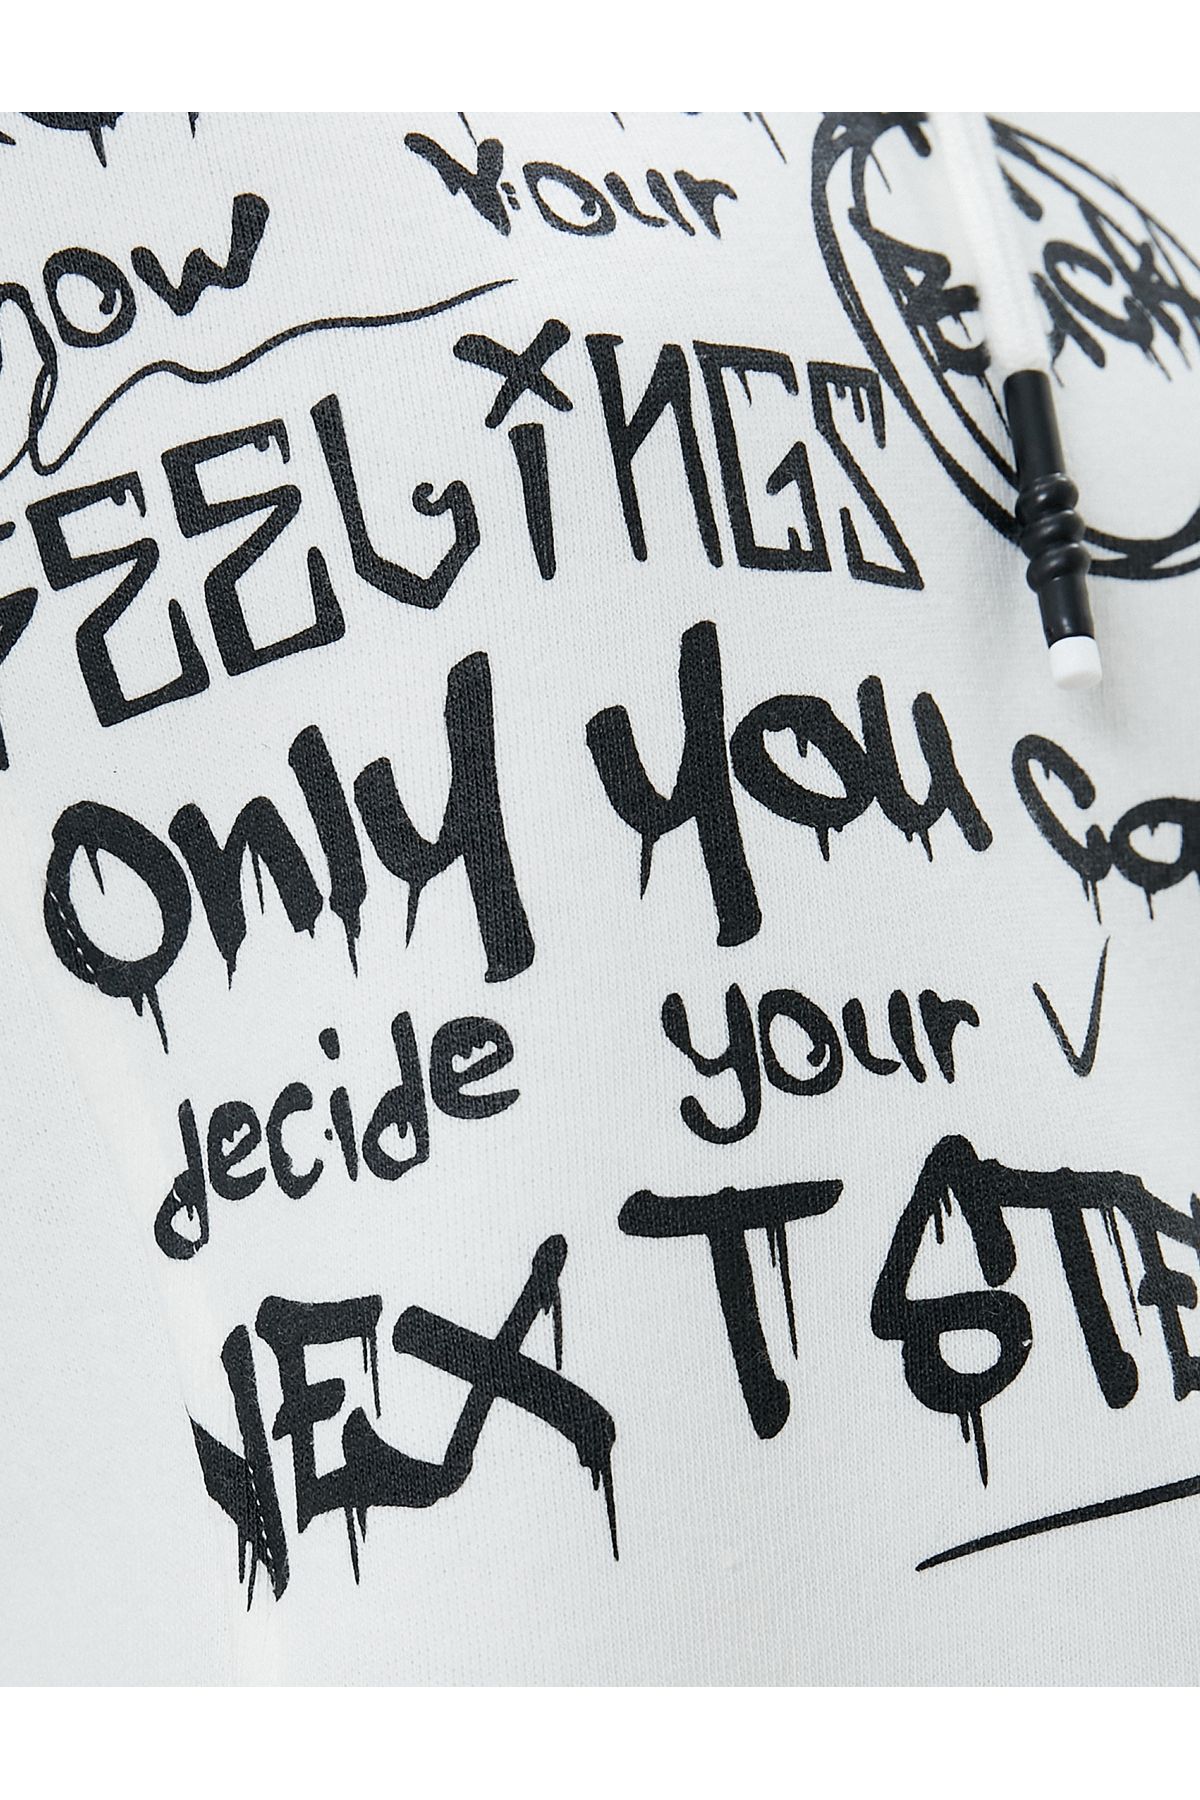 your
now
BLACK
FEELiNGS
only you
decide your
NEXT STE